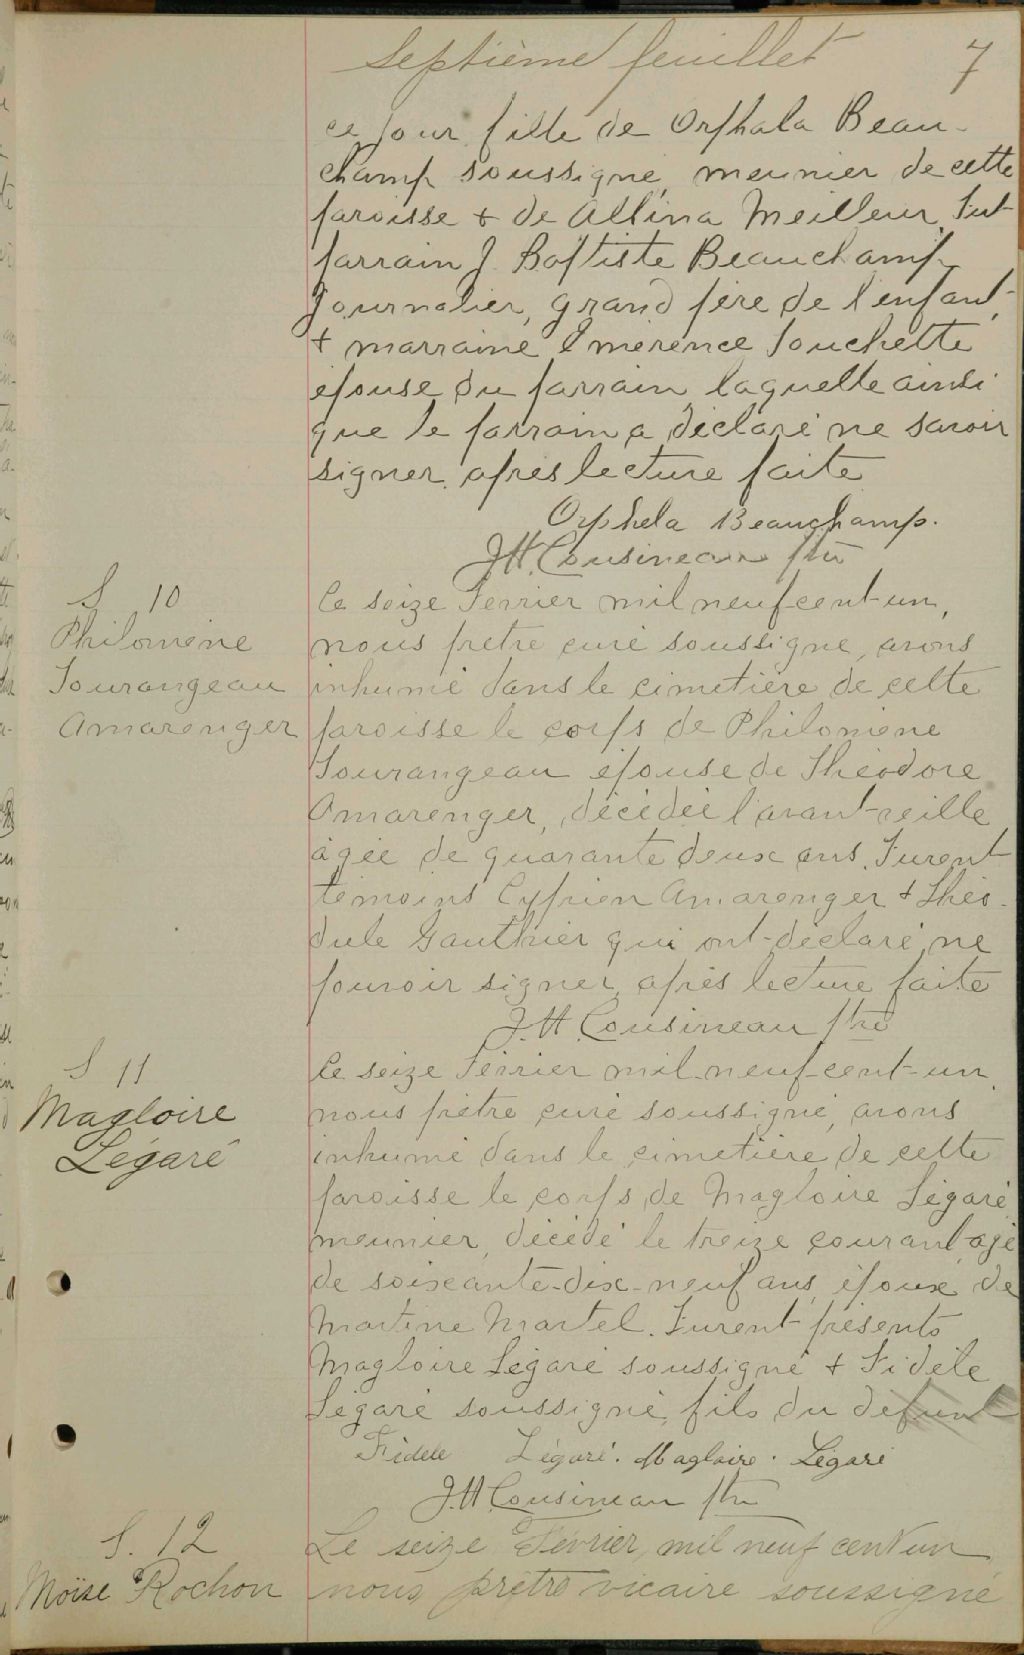 Septième feuillet 7
ce jour fille de Orphala Beau-
champ soussigné, meunier de cette
paroisse & de Albina Meilleur. Fut
parrain J. Baptiste Beauchamp
journalier, grand père de l'enfant,
& marraine Emérence Touchette
épouse du parrain laquelle ainsi
que le parrain a déclaré ne savoir
signer. après lecture faite
Orphela Beauchamp.
J.H. Cousineau Ptre
S 10
Philomène
Tourangeau
Amarenger
Le seize Février mil neuf-cent-un,
nous prêtre curé soussigné, avons
inhumé dans le cimetière de cette
paroisse le corps de Philomène
Tourangeau épouse de Théodore
Amarenger, décédée l'avant-veille
agée de quarante deux ans. Furent
témoins Cyprien Amarenger & Théo-
dule Gauthier qui ont déclaré ne
pouvoir signer, après lecture faite
J.H. Cousineau Ptre
S 11
Magloire
Légaré
Le seize Février mil-neuf-cent-un
nous prêtre curé soussigné, avons
inhumé dans le cimetière de cette
paroisse le corps de Magloire Légaré
meunier, décédé le treize courant agé
de soixante-dix-neuf ans, époux de
Martine Martel. Furent présents
Magloire Légaré soussigné & Fidèle
Légaré soussigné, fils du defunt
Fidèle Légaré. Magloire. Légaré
J.H. Cousineau Ptre
S. 12
Moïse Rochon
Le seize Février, mil neuf cent un
nous, prêtre vicaire soussigné